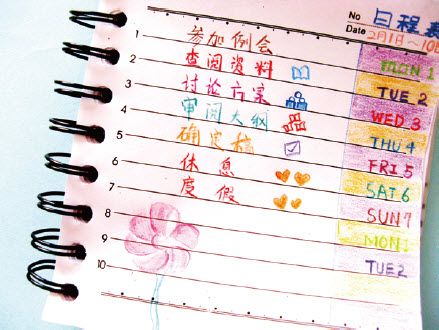 No 日程表
Date 2月1日~10日
1 参加例会 MON 1
2 查阅资料 TUE 2
3 讨论方案 WED 3
4 审阅大纲 THU 4
5 确定稿 FRI 5
6 休息 SAT 6
7 度假 SUN 7
8 MON 1
9 TUE 2
10